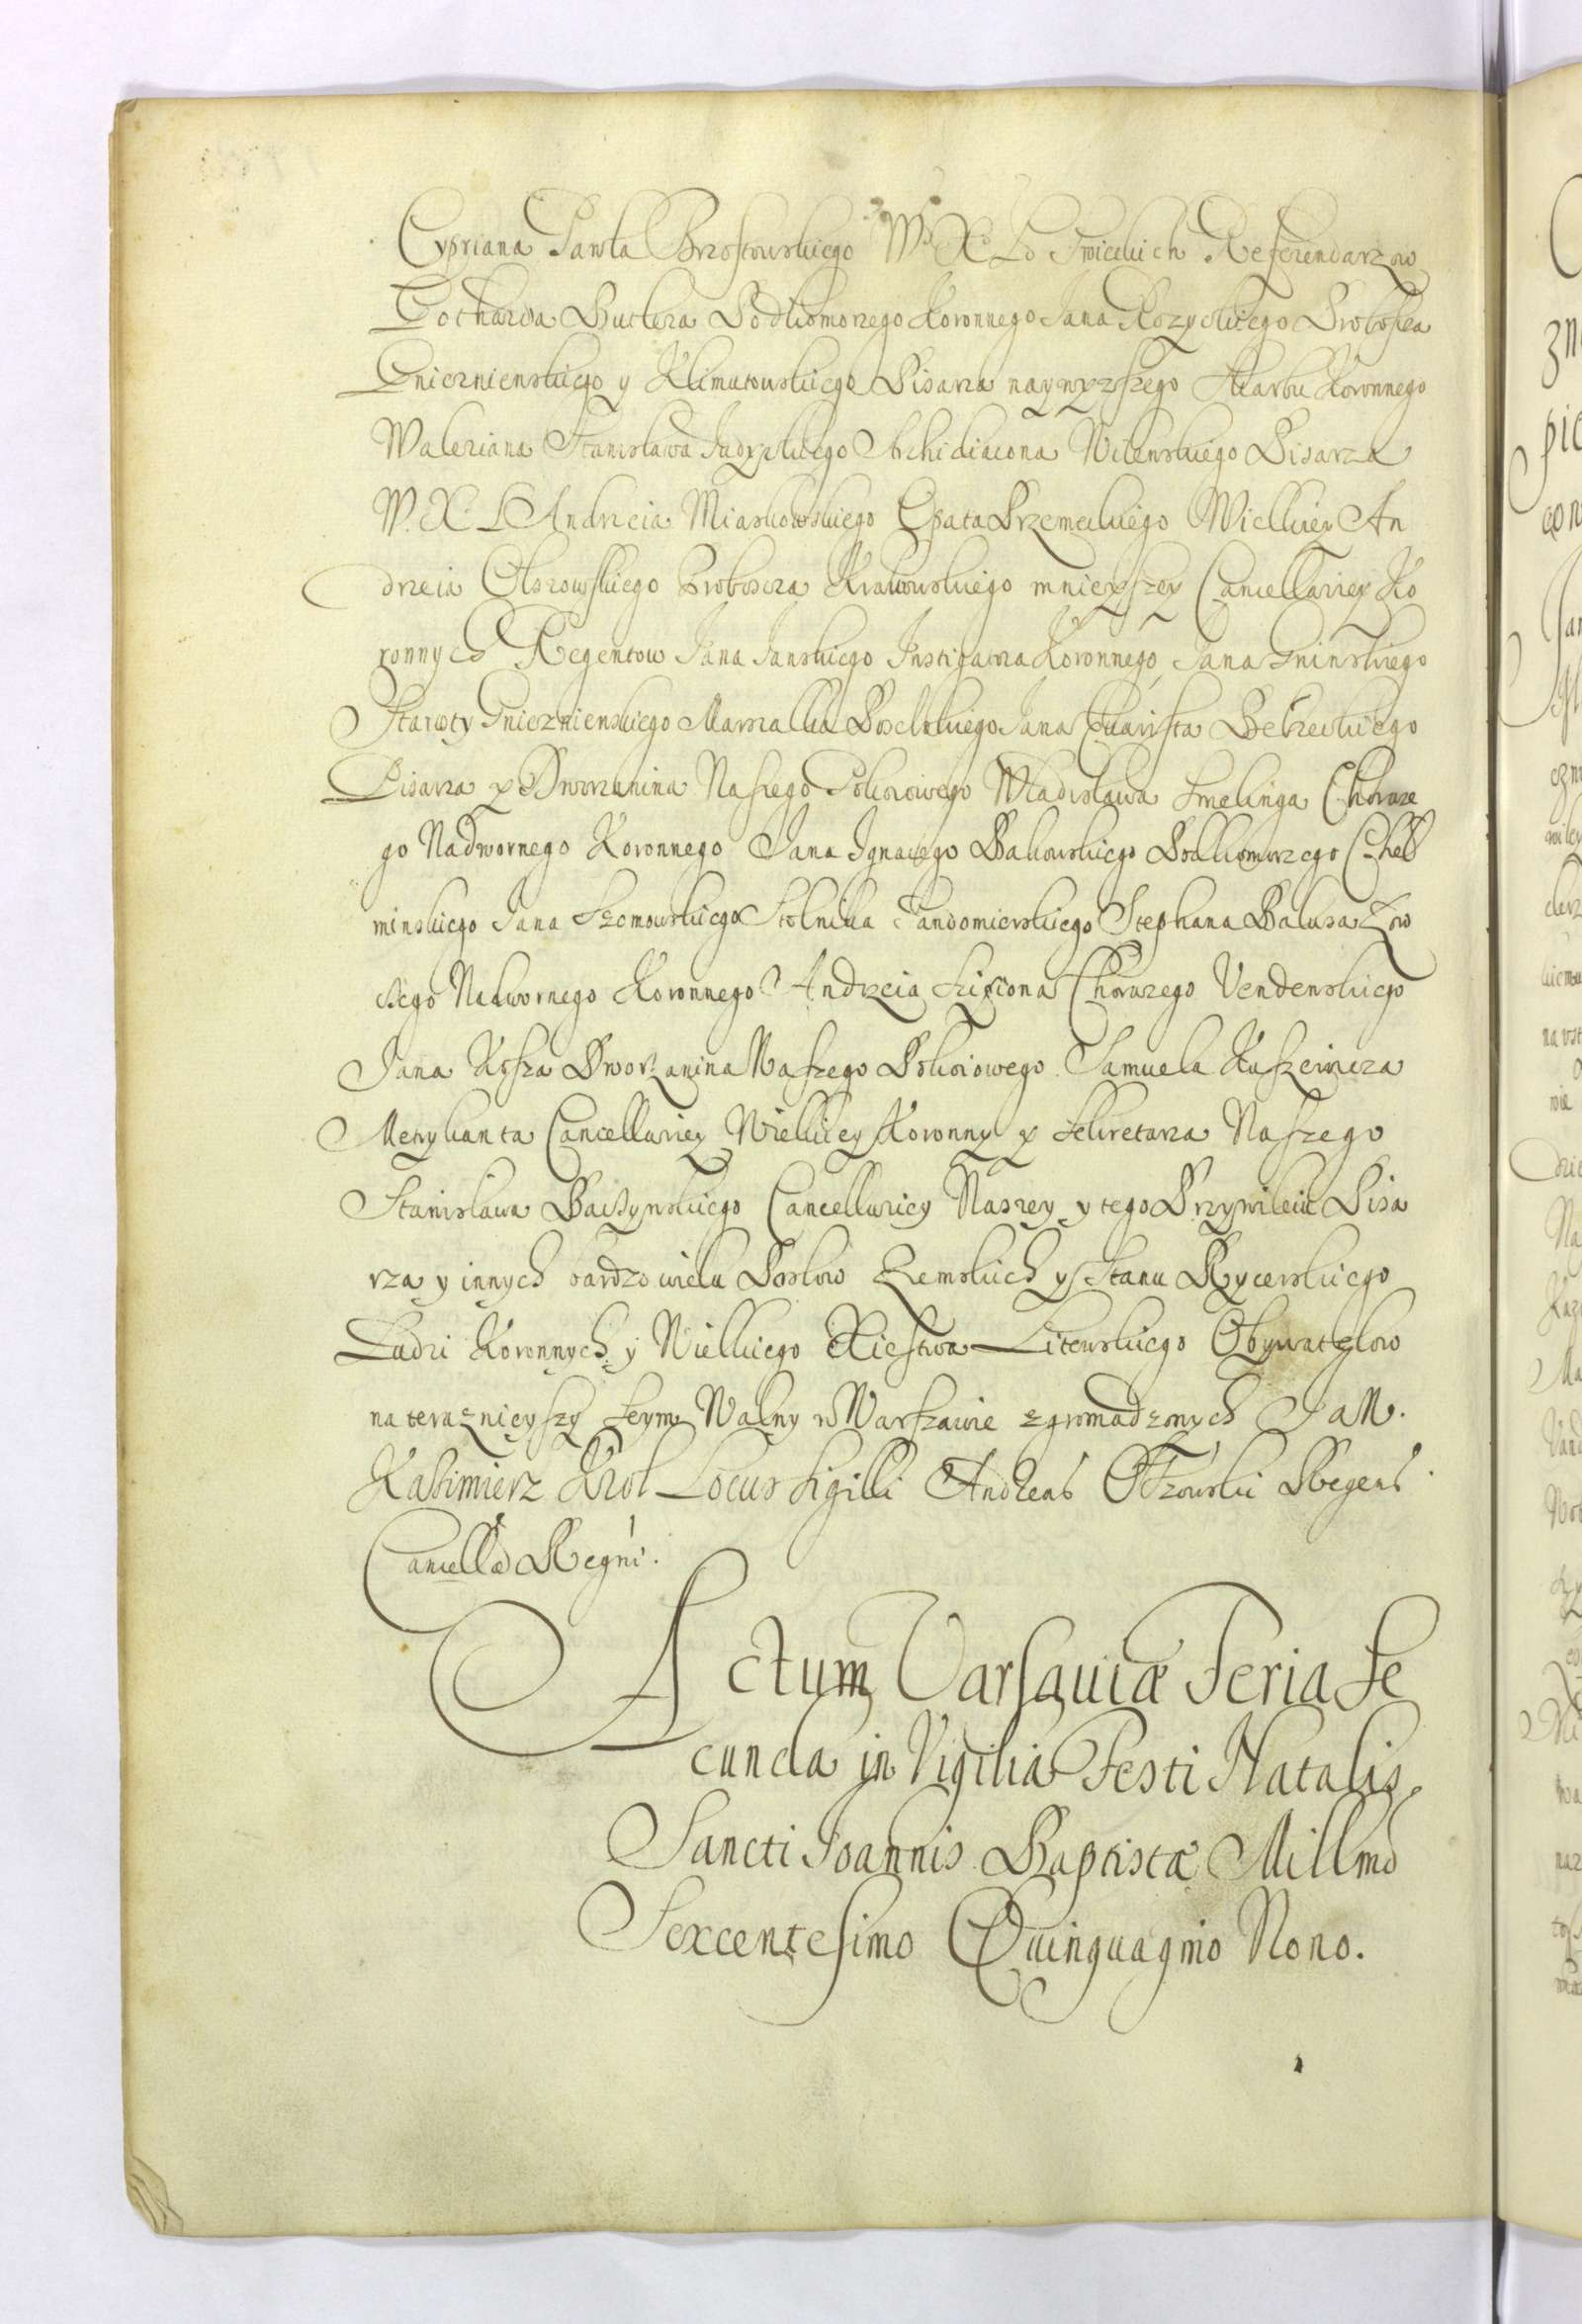 Cypriana Pawła Brzostowskiego Wo Xo Lo Swieckich Referendarzow
Gotharda Butlera Podkomorzego Koronnego Jana Rozyckiego Proboszcza
Gnieznienskiego y Klimutowskiego Pisarza naywyzszego Skarbu Koronnego
Waleriana Stanislawa Judyckiego Archidiacona Wilenskiego Pisarza
W. X. L Andrzeia Miaskowskiego Opata Przemeckiego Wielkiey An
drzeia Olszowskiego Proboscza Krakowskiego mnieyszey Cancellariey Ko
ronnych Regentow Jana Janskiego Instigatora Koronnego, Jana Gninskiego
Starosty Gnieznienskiego Marszalka Poselskiego Jana Ewarista Belzeckiego
Pisarza y Dworzanina Naszego Pokoiowego Wladislawa Szmelinga Choraze
go Nadwornego Koronnego Jana Ignacego Bakowskiego Podkomorzego Cheł
minskiego Jana Szomowskiego Stolnika Sandomierskiego Stephana Bałusa Łow
czego Nadwornego Koronnego Andrzeia Sziziona Chorazego Vendenskiego
Jana Kosza Dworzanina Naszego Pokoiowego Samuela Kuszewicza
Metrykanta Cancellariey Wielkiey Koronny y Sekretarza Naszego
Stanislawa Baczynskiego Cancellariey Naszey y tego Przywileiu Pisa
rza y innych bardzo wielu Posłow Zemskich y Stanu Rycerskiego
Ludzi Koronnych y Wielkiego Xiestwa Litewskiego Obywatelow
na teraznieyszy Seym Walny w Warszawie zgromadzonych Jan
Kazimierz Krol Locus Sigilli Andreas Olszowski Regens
Cancellæ Regni.
Actum Varsaviæ Feria Se
cunda in Vigilia Festi Natalis
Sancti Joannis Baptistæ Millmo
Sexcentesimo Quinquagmo Nono.